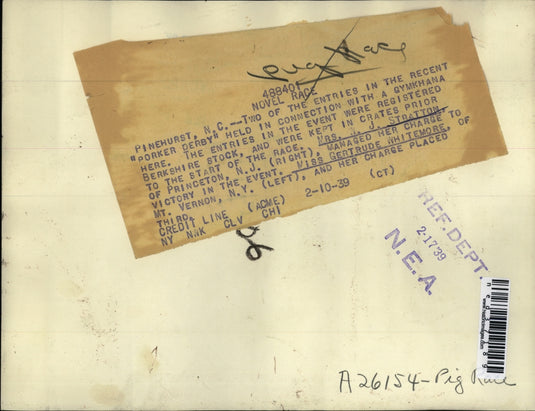 Pig Race
488401
NOVEL RACE
PINEHURST, N.C.--TWO OF THE ENTRIES IN THE RECENT
"PORKER DERBY" HELD IN CONNECTION WITH A GYMKHANA
HERE. THE ENTRIES IN THE EVENT WERE REGISTERED
BERKSHIRE STOCK, AND WERE KEPT IN CRATES PRIOR
TO THE START OF THE RACE. MRS. W. J. STRATTON,
OF PRINCETON, N.J. (RIGHT), MANAGED HER CHARGE TO
VICTORY IN THE EVENT. MISS GERTRUDE WHITEMORE, OF
MT. VERNON, N.Y. (LEFT), AND HER CHARGE PLACED
THIRD.
CREDIT LINE (ACME) 2-10-39 (CT)
NY NWK CLV CHI
REF. DEPT.
2-17 39
N.E.A.
A26154-Pig Race